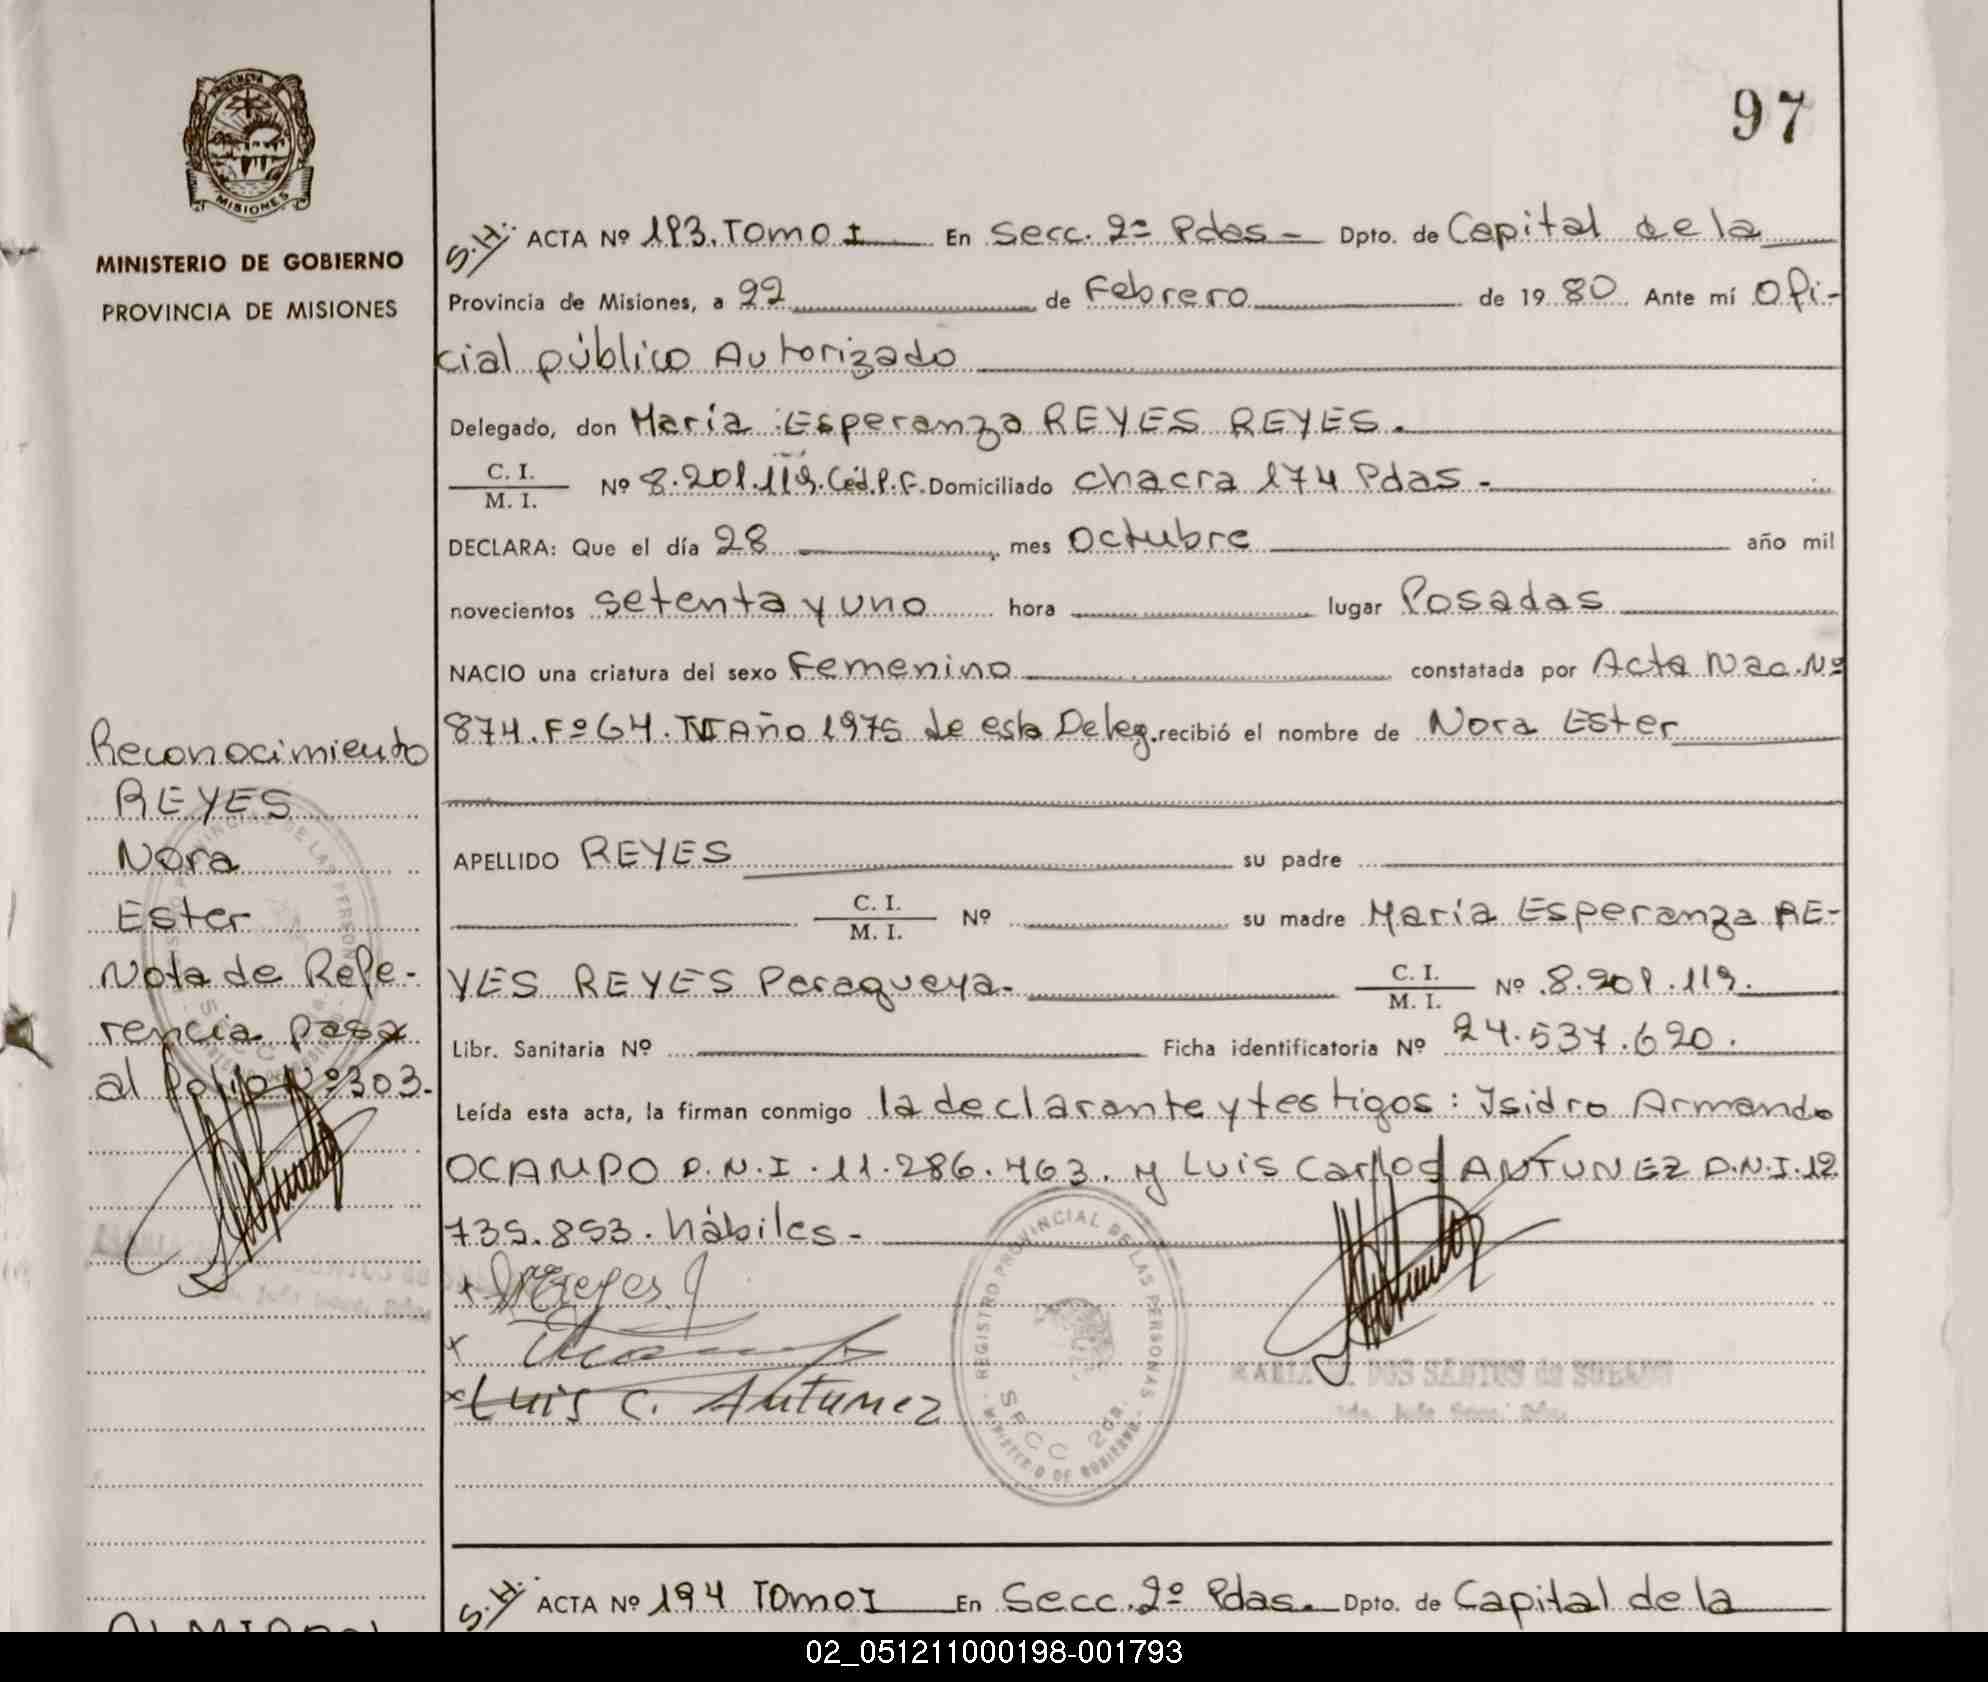 97
MISIONES
MINISTERIO DE GOBIERNO
PROVINCIA DE MISIONES
S.H. ACTA Nº 193. Tomo I En Secc. 2ª Pdas - Dpto. de Capital de la
Provincia de Misiones, a 22 de Febrero de 1980. Ante mí Ofi-
cial público Autorizado
Delegado, don María Esperanza REYES REYES.
C. I.
M. I. Nº 8.201.119. Céd. P. F. Domiciliado chacra 174 Pdas -
DECLARA: Que el día 28, mes octubre año mil
novecientos setenta y uno hora lugar Posadas
NACIO una criatura del sexo Femenino constatada por Acta Nac. Nº
874. Fº 64. T VI Año 1975 de esta Deleg. recibió el nombre de Nora Ester
APELLIDO REYES su padre
C. I.
M. I. Nº su madre María Esperanza RE-
YES REYES Paraguaya- C. I.
M. I. Nº 8.201.119.
Libr. Sanitaria Nº Ficha identificatoria Nº 24.537.620.
Leída esta acta, la firman conmigo la declarante y testigos: Isidro Armando
OCAMPO D.N.I. 11.286.463. y Luis Carlos ANTUNEZ D.N.I. 12
735.853. hábiles -
Luis C. Antunez
REGISTRO PROVINCIAL DE LAS PERSONAS
SECC 2da.
MINISTERIO DE GOBIERNO
MARIA DOS SANTOS de
Reconocimiento
REYES
Nora
Ester
Nota de Refe-
rencia pasa
al Folio Nº 303.
S.H. ACTA Nº 194 Tomo I En Secc. 2º Pdas. Dpto. de Capital de la
02_051211000198-001793